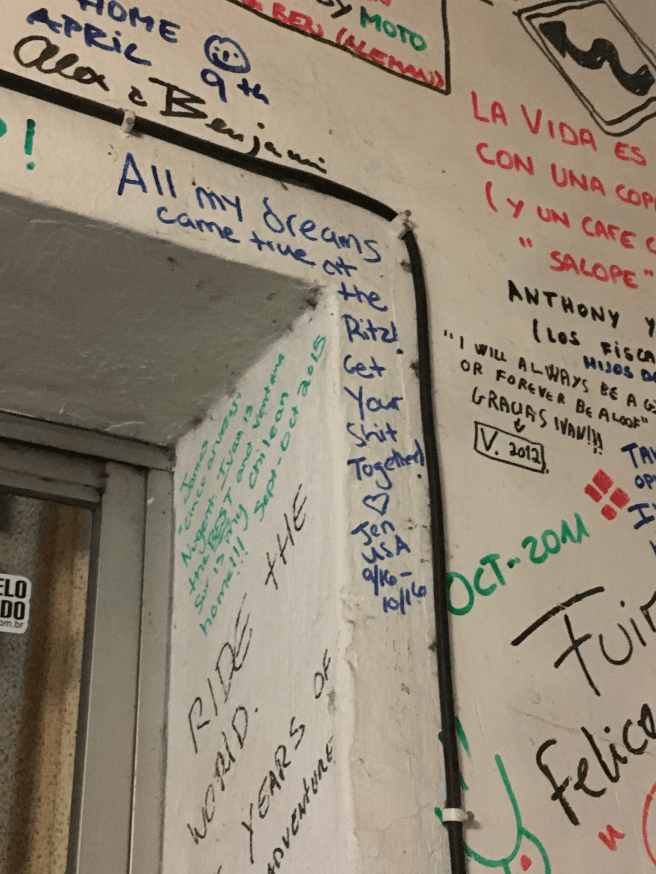 HOME
APRIL 9th
Alex & Benjami
MOTO
BEN (ALEMAN)
!
All my dreams
came true at
the
Ritz!
Get
Your
Shit
Together!
Jen
USA
9/16-
10/16
LA VIDA ES
CON UNA
(Y UN CAFE
"SALOPE"
ANTHONY Y
(LOS
HIJOS
"I WILL ALWAYS BE A
OR FOREVER BE A
GRACIAS IVAN!!!
V. 2012
OCT-2011
James
Nugent. Ivan is
the BEST and Ventana
Sur is my Chilean
home!!! Sept-Oct 2015
RIDE THE
WORLD.
YEARS OF
ADVENTURE
ELO
DO
om.br
Felic